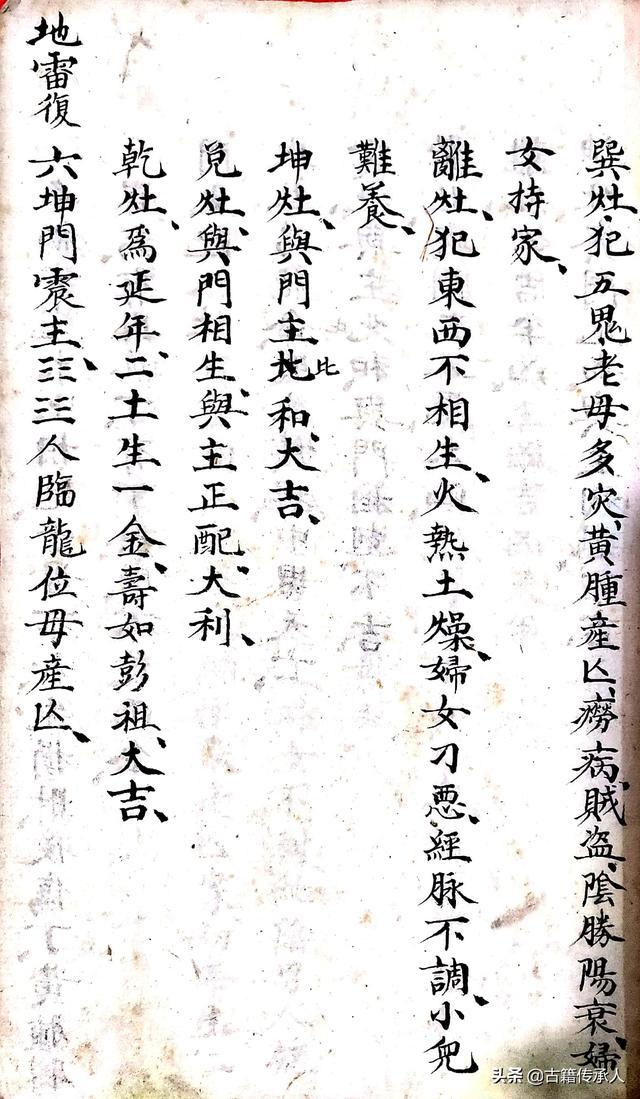 巽灶、犯五鬼、老母多灾、黄腫産亡、癆病、賊盗、陰勝陽衰、婦
女持家、
離灶、犯東西不相生、火熱土燥、婦女刁悪、經脉不調、小兒
難養、
坤灶、與門主比比和、大吉、
兌灶、與門相生、與主正配、大利、
乾灶、爲延年、二土生一金、壽如彭祖、大吉、
地雷復
六坤門震主、☷☳人臨龍位母産亡、
头条 @古籍传承人